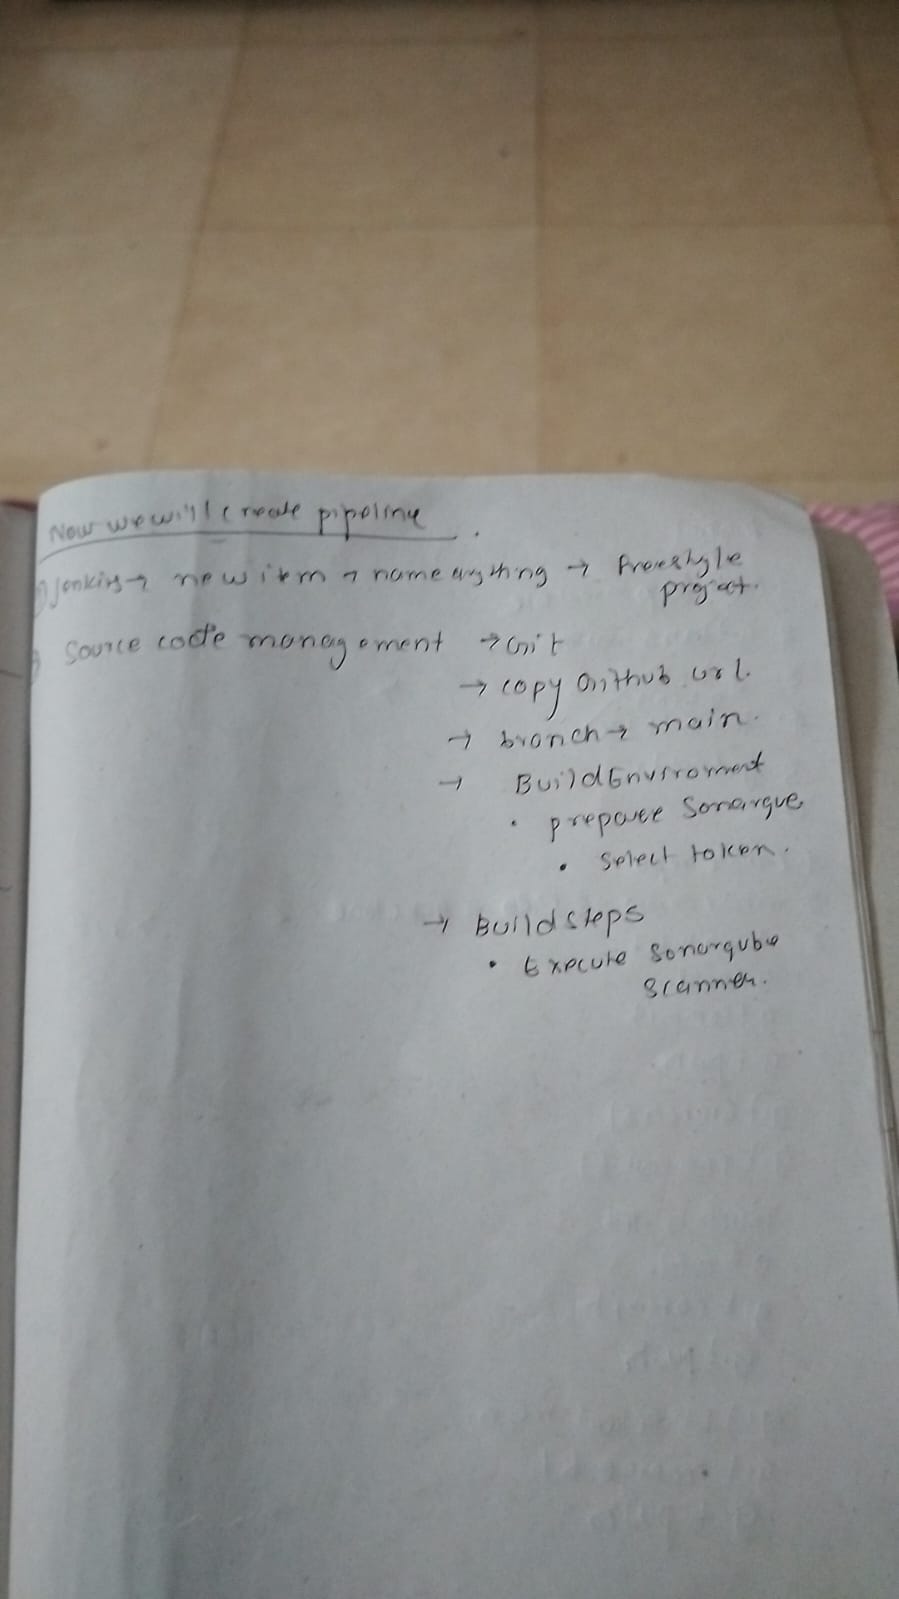 Now we will create pipeline.
1) Jenkins → new item → name anything → Freestyle
project.
Source code management → Git
→ copy Github url.
→ branch → main.
→ Build Enviroment
• prepare Sonarque
• Select token.
→ Build steps
• Execute Sonarqube
Scanner.